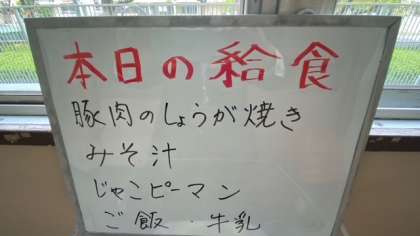 本日の給食
豚肉のしょうが焼き
みそ汁
じゃこピーマン
ご飯・牛乳